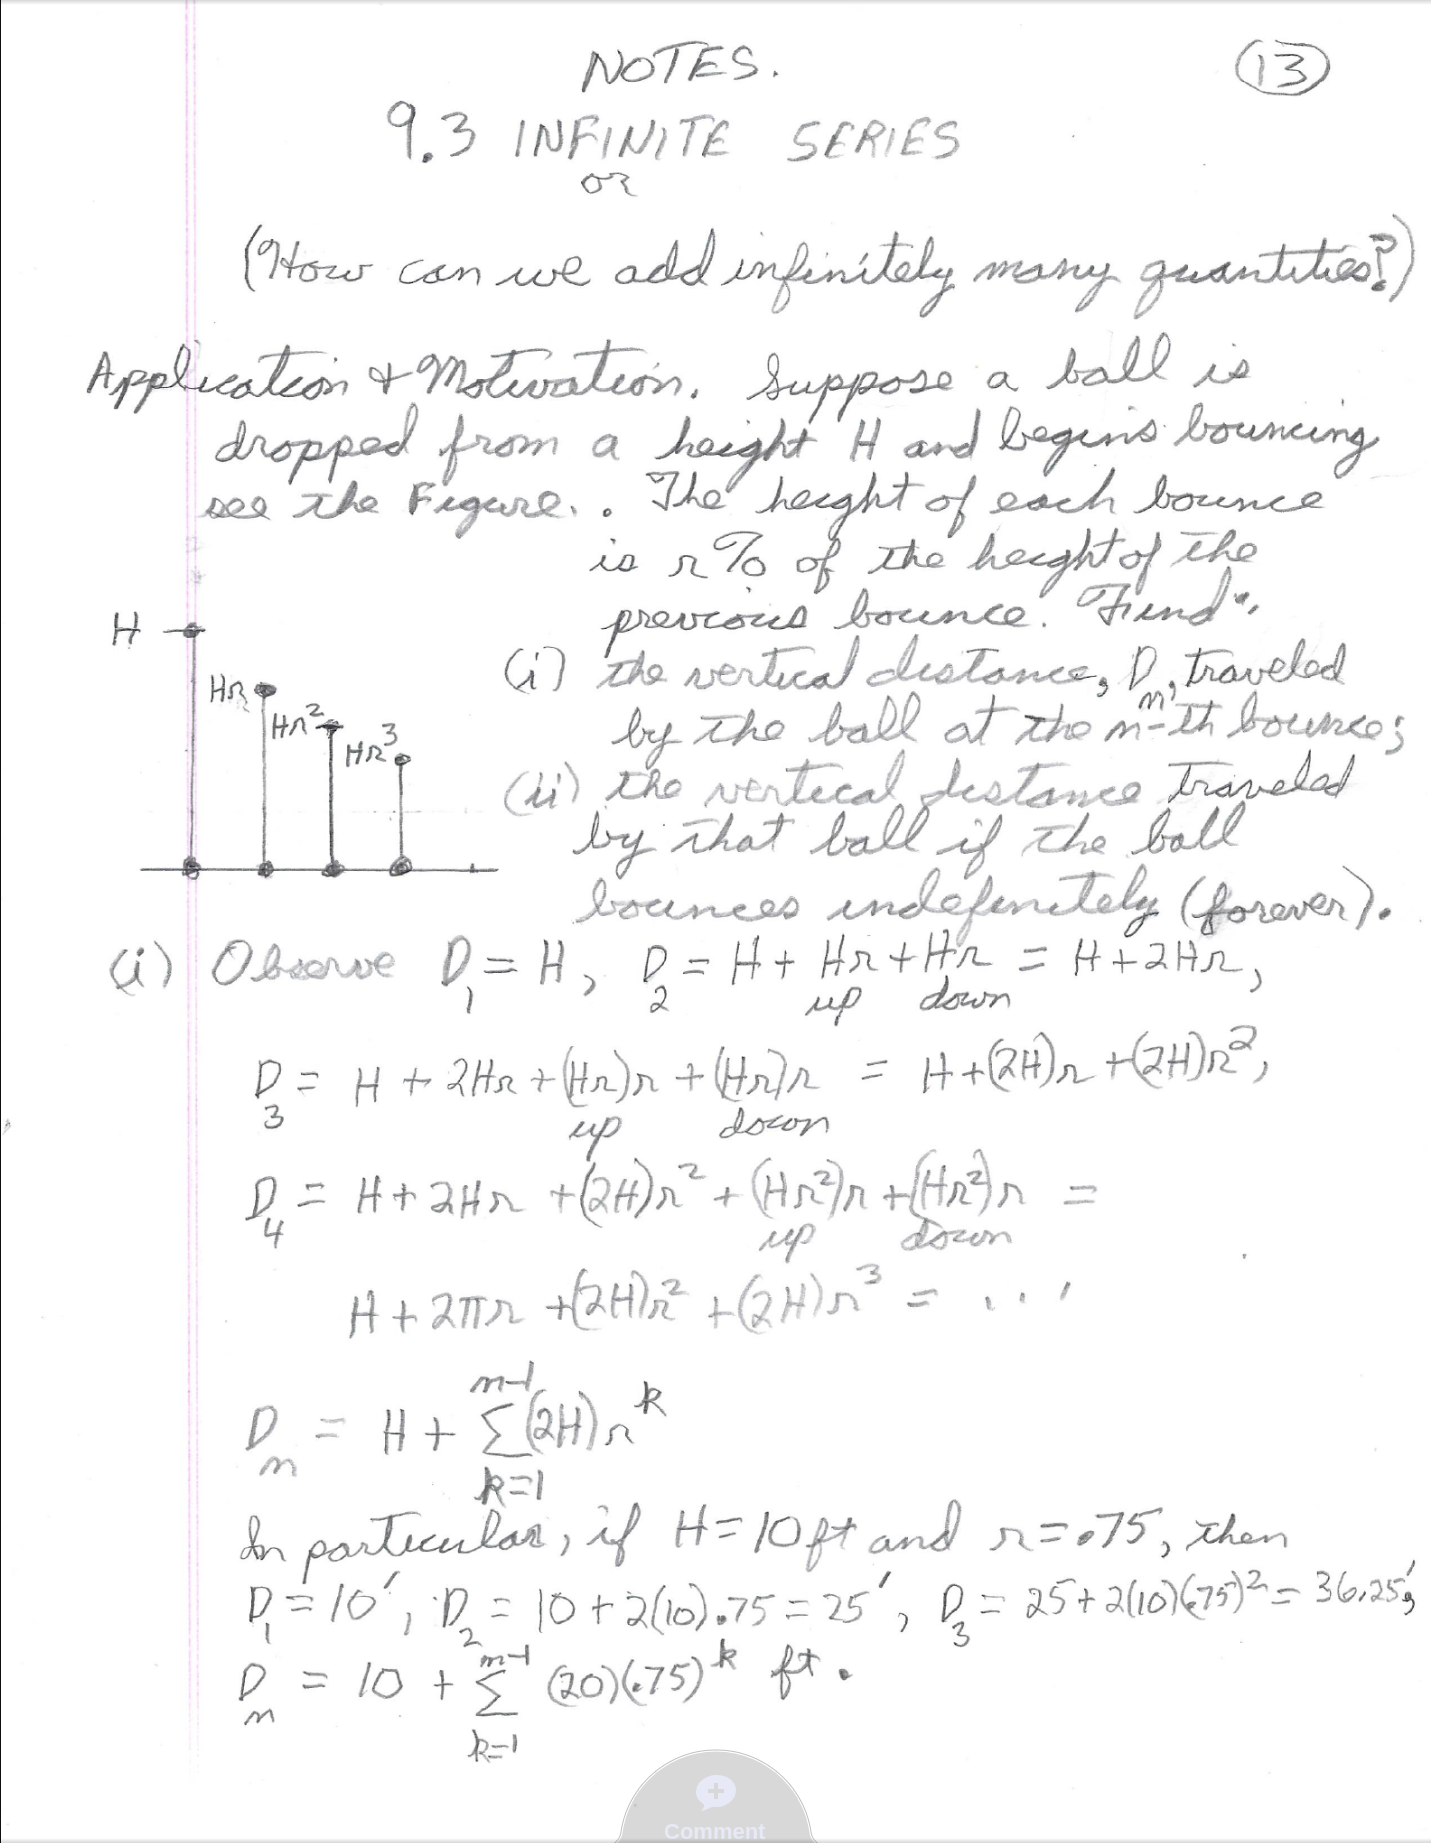 NOTES.
13
9.3 INFINITE SERIES
or
(How can we add infinitely many quantities?)
Application & Motivation. Suppose a ball is
dropped from a height H and begins bouncing
see the Figure. . The height of each bounce
is r% of the height of the
previous bounce. Find:
H
Hr
Hr²
Hr³
(i) the vertical distance, Dₙ, traveled
by the ball at the n-th bounce;
(ii) the vertical distance traveled
by that ball if the ball
bounces indefinitely (forever).
(i) Observe D₁ = H, D₂ = H + Hr + Hr = H + 2Hr,
up down
D₃ = H + 2Hr + (Hr)r + (Hr)r = H + (2H)r + (2H)r²,
up down
D₄ = H + 2Hr + (2H)r² + (Hr²)r + (Hr²)r =
up down
H + 2πr + (2H)r² + (2H)r³ = ...,
n-1
Dₙ = H + Σ (2H) r^k
k=1
In particular, if H = 10 ft and r = .75, then
D₁ = 10', D₂ = 10 + 2(10).75 = 25', D₃ = 25 + 2(10)(.75)² = 36.25';
n-1
Dₙ = 10 + Σ (20)(.75)^k ft.
k=1
Comment